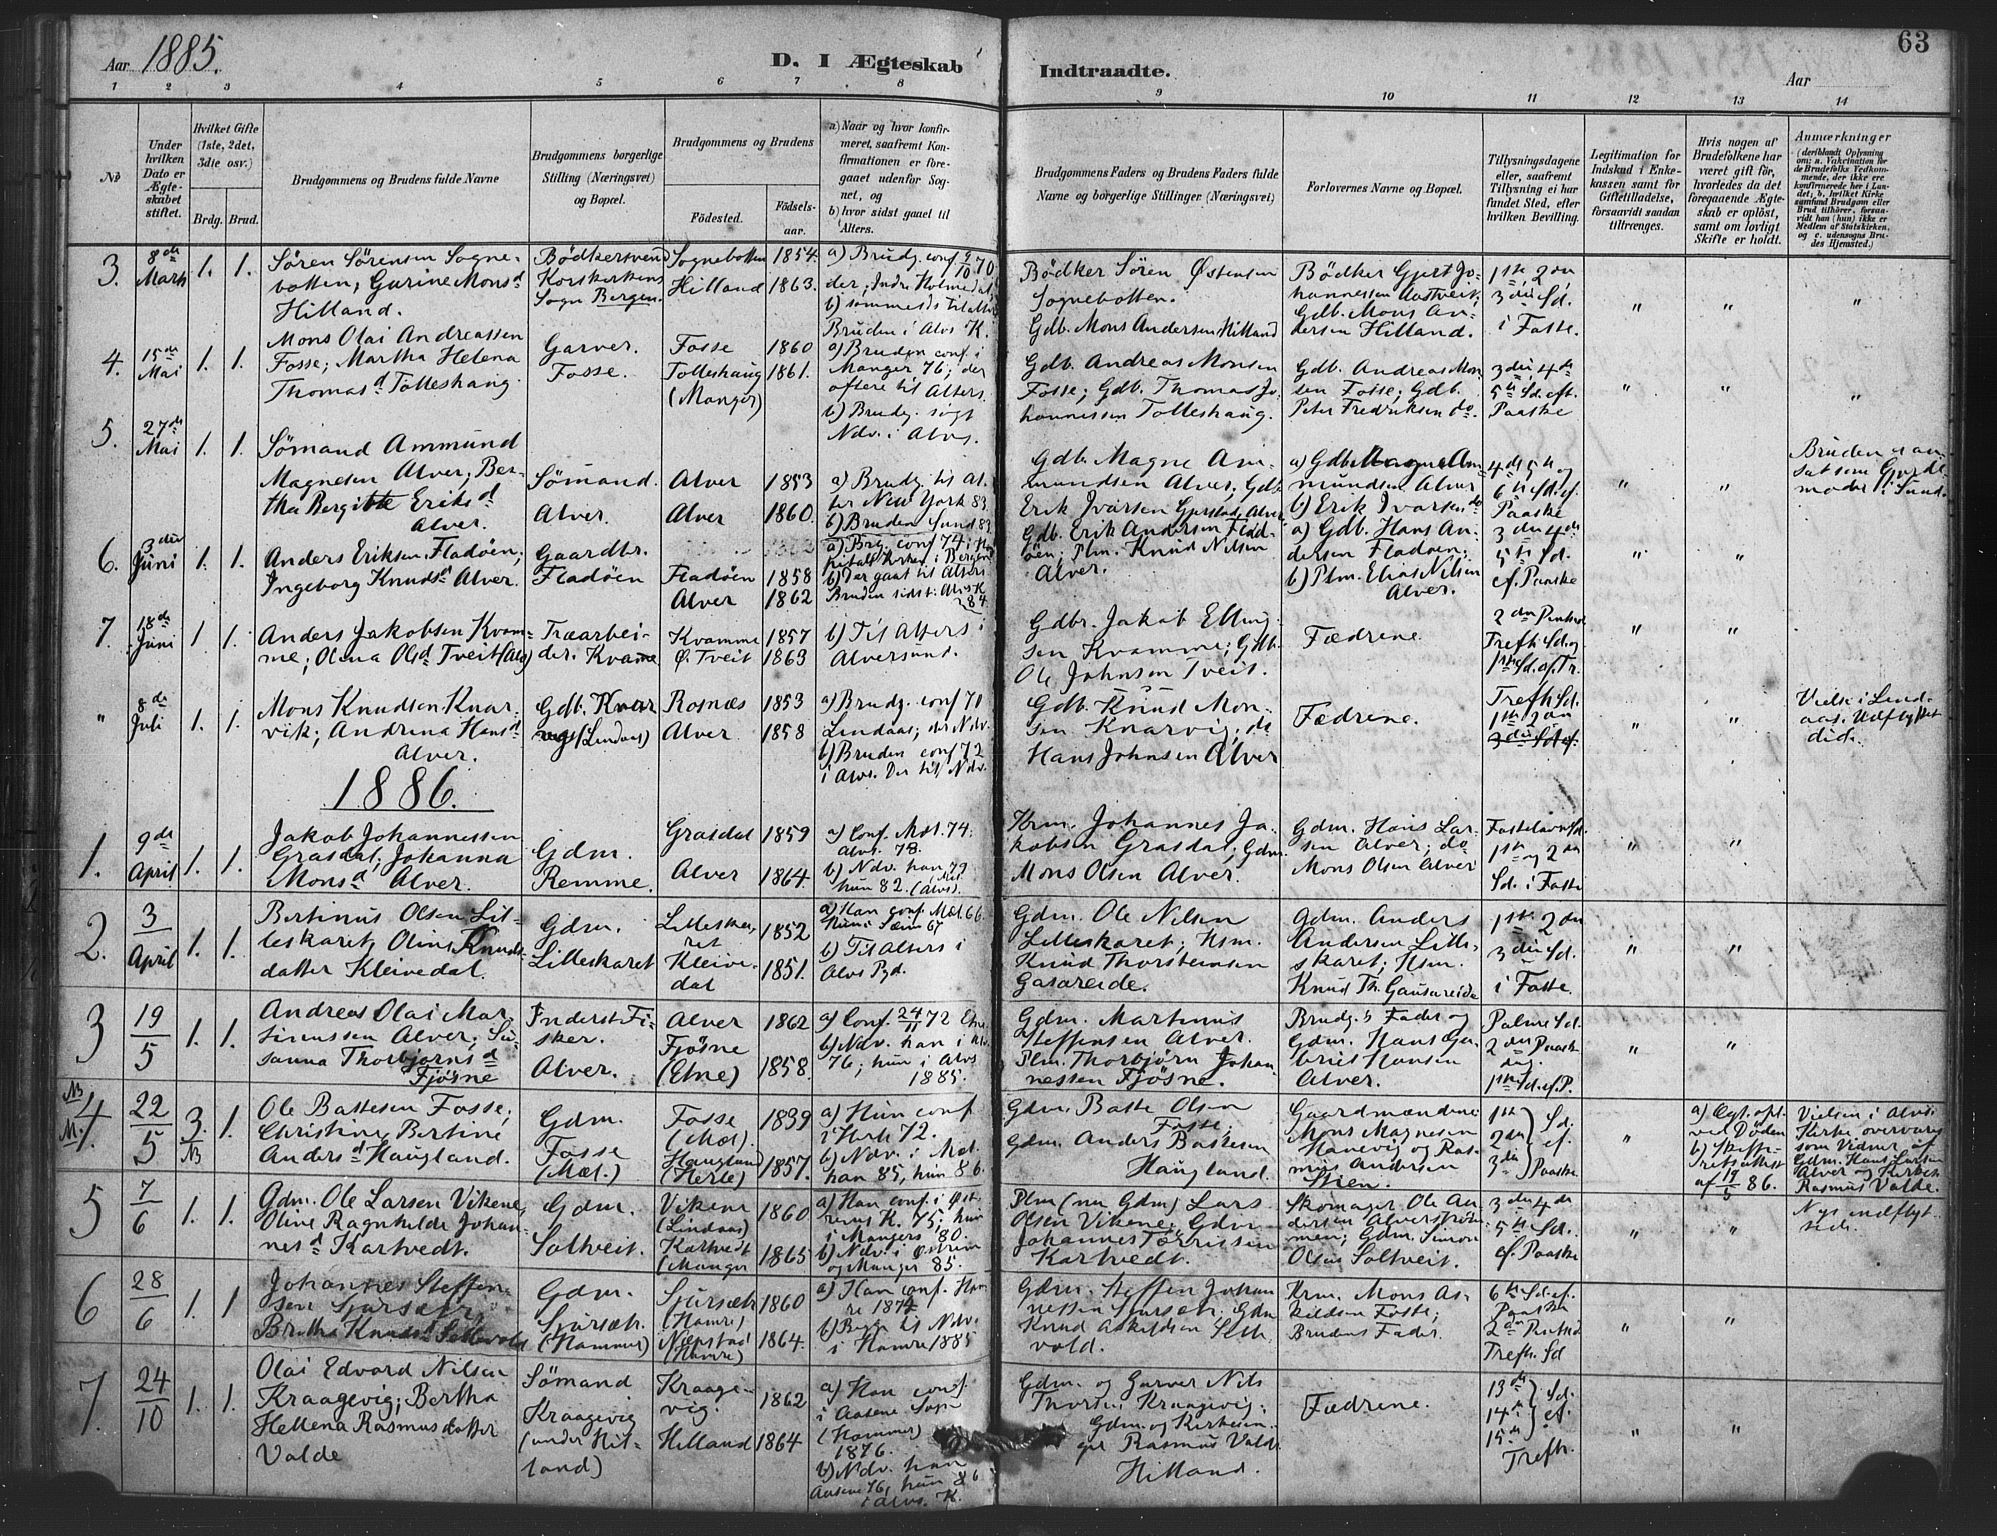 Aar 1885.
D. I Ægteskab Indtraadte.
Aar
63
1 2 3 4 5 6 7 8 9 10 11 12 13 14
No
Under hvilken Dato er Ægteskabet stiftet.
Hvilket Gifte (1ste, 2det, 3die osv.)
Brdg. Brud.
Brudgommens og Brudens fulde Navne
Brudgommens borgerlige Stilling (Næringsvei) og Bopæl.
Brudgommens og Brudens
Fødested.
Fødselsaar.
a) Naar og hvor konfirmeret, saafremt Konfirmationen er foregaaet udenfor Sognet, og
b) hvor sidst gaaet til Alters.
Brudgommens Faders og Brudens Faders fulde Navne og borgerlige Stillinger (Næringsvei)
Forlovernes Navne og Bopæl.
Tillysningsdagene eller, saafremt Tillysning ei har fundet Sted, efter hvilken Bevilling.
Legitimation for Indskud i Enkekassen samt for Giftetilladelse, forsaavidt saadan tiltrænges.
Hvis nogen af Brudefolkene har været gift før, hvorledes da det foregaaende Ægteskab er opløst, samt om lovligt Skifte er holdt.
Anmærkninger
(deriblandt Oplysning om: a. Vakcination for de Brudefolks Vedkommende, der ikke ere konfirmerede her i Landet; b. hvilket Kirkesamfund Brudgom eller Brud tilhører, forsaavidt han (hun) ikke er Medlem af Statskirken, og c. udensogns Brudes Hjemsted.)
3. 8de Marts 1. 1.
Søren Sørensen Sognebotten; Gurine Monsd Hilland.
Bödkersvend Korskirkens Sogn Bergen.
Sognebotten 1854.
Hilland 1863.
Bödker Sören Östensen Sognebotten.
Gdb. Mons Andersen Hilland
Bödker Gjert Johannessen Aastveit;
Gdb. Mons Andersen Hilland.
1ste, 2den 3die Sd. i Faste.
4. 15de Mai 1. 1.
Mons Olai Andreassen Fosse; Martha Helena Thomasd Tolleshaug.
Garver. Fosse.
Fosse 1860
Tolleshaug (Manger) 1861.
a) Bruden conf. i Manger 76; der oftere til Alters.
b) Brudg. søgt Ndv. i Alvs.
Gdb. Andreas Monsen Fosse; Gdb. Thomas Johannessen Tolleshaug.
Gdb. Andreas Monsen Fosse; Gdb. Peter Fredriksen do.
3die, 4de 5te Sd. eft. Paaske
5. 27de Mai 1. 1.
Sømand Ammund Magnesen Alver; Bertha Bergitte Eriksd Alver.
Sømand. Alver.
Alver 1853
Alver 1860.
a) Brudg. til Alter New York 83.
b) Bruden Sund 83
Gdb. Magne Amundsen Alver; Gdb. Erik Ivarsen Alver
a) Gdb. Magne Amundsen Alver
b) Erik Ivarsen do
4de, 5te og 6te Sd. ef. Paaske
Bruden er ansat som Gjordemoder i Sund.
6. 3die Juni 1. 1.
Anders Eriksen Fladöen; Ingeborg Knudsd Alver.
Gaardbr. Fladöen
Fladöen 1858
Alver 1862
Gdb. Erik Andersen Fladöen; Plm. Knud Nilsen Alver.
a) Gdb. Hans Andersen Fladöen;
b) Plm. Elias Nilsen Alver.
3die 4de 5te Sd. ef. Paaske
7. 18de Juni 1. 1.
Anders Jakobsen Kvamme; Olena Olsd Tveit
Træarbeider. Kvamme
Kvamme 1857
Ø. Tveit 1863
b) Til Alters i Alversund.
Gdbr. Jakob Ellingsen Kvamme; Gdb. Ole Johnsen Tveit.
Fædrene.
2den Pintsed. Trefh. Sd. og 1ste Sd. ef. Tr.
" 8de Juli 1. 1.
Mons Knudsen Knarvik; Andrina Hansd Alver.
Gdb. Knarvig (Lindaas)
Rosnæs 1853
Alver 1858
a) Brudg. conf. 70 Lindaas; der Ndv.
b) Bruden conf. 72 i Alvs. Der til Ndv.
Gdb. Knud Monsen Knarvig; do Hans Johnsen Alver
Fædrene.
Trefh. Sd. 1ste 2den 3die Sd. ef.
Vielse i Lindaas. Udflyttet did.
1886.
1. 9de April 1. 1.
Jakob Johannessen Grasdal; Johanna Monsd Alver.
Gdm. Remme.
Grasdal 1859
Alver 1864.
a) Conf. Mæl. 74; Alvs. 78.
b) Ndv. han 79 hun 82. (Alvs).
Krm. Johannes Jakobsen Grasdal; Gdm. Mons Olsen Alver.
Gdm. Hans Larsen Alver; do Mons Olsen Alver
Fastelavns Sd. 1ste og 2den Sd. i Faste
2. 3 April 1. 1.
Bertinus Olsen Lilleskaret, Olina Knudsdatter Kleivedal.
Gdm. Lilleskaret
Lilleskaret 1852
Kleivedal 1851.
a) Han conf. Mæl. 66. Hun i Sæm 67
b) Til Alters i Alvs
Gdm. Ole Nilsen Lilleskaret; Hsm. Knud Thorsteinsen Gasareide.
Gdm. Anders Andersen Lilleskaret; Hsm. Knud Th. Gausareide
1ste 2den 3die Sd. i Faste.
3 19/5 1. 1.
Andreas Olai Martinussen Alver, Susanna Thorbjørnsd Fjøsne
Inderst Fisker. Alver.
Alver 1862
Fjøsne (Etne) 1858.
a) Conf. 24/11 72 Etne
b) Ndv. han i 76; hun i Alvs 1885.
Gdm. Martinus Steffensen Alver.
Plm. Thorbjörn Johannessen Fjøsne.
Brudg.s Fader og Gdm. Hans Gabriel Hansen Alver.
Palme Sd. 2den Paaskedag. 1ste Sd. ef. P.
4. 22/5 3. NB 1.
Ole Battesen Fosse; Christine Bertine Andersd Haugland.
Gdm. Fosse (Mæl.)
Fosse (Mæl.) 1839
Haugland (Herlø) 1857.
a) Hun conf. i Herlø 72.
b) Ndv. i Mæl. han 85, hun 86.
Gdm. Batte Olsen Fosse;
Gdm. Anders Battesen Haugland.
Gaardmændene Mons Magnesen Hanevig og Rasmus Andersen Stien.
1ste 2den 3die Sd. ef. Paaske
a) Egt. opl. ved Döden
b) Skifteretsattest af 19/5 86.
Vielsen i Alvs. Kirke overværes som Vidner af Gdm. Hans Larsen Alver og Kirkes. Rasmus Valde.
5 7/6 1. 1.
Gdm. Ole Larsen Vikene; Olive Ragnhilde Johannesd Kartvedt.
Gdm. Soltveit.
Vikene (Lindaas) 1860
Kartvedt (Manger) 1865
a) Han conf. i Østrems K. 75; hun i Mangers 80.
b) Ndv. i Østrem og Manger 85.
Plm (nu Gdm) Lars Olsen Vikene; Gdm. Johannes Torrissen Kartvedt.
Skomager Ole Andersen Alverströmmen; Gdm. Simon Olsen Soltveit.
3die 4de 5te Sd. ef. Paaske
Nys indflyttede.
6 28/6 1. 1
Johannes Steffensen Sjursæth; Britha Knudsd Settevold
Gdm. Sjursæth. (Hammer)
Sjursæth (Hamre) 1860
(Hamre) 1864.
a) Han conf. Hamre 1874
b) Begge til Ndv. i Hamre 1885
Gdm. Steffen Johannessen Sjursæth. Gdm Knud Askildsen Settevold.
Krm. Mons Askildsen Fosse; Brudens Fader.
6te Sd. ef. Paaske 2den Pintsed. Trefh. Sd
7. 24/10 1. 1.
Olai Edvard Nilsen Kraagevig; Bertha Hellena Rasmusdatter Valde
Sømand Kraagevig (under Hilland)
Kraagevig. 1862
Hilland 1864
a) Han conf. i Aasene Sogn (Hammer) 1876.
b) Ndv. han Aasene 76, hun 86 i Alvs. K.
Gdm. og Garver Nils Thorsen Kraagevig;
Gdm. og Kirkesanger Rasmus Valde Hilland.
Fædrene.
13de 14de 15de Sd. ef. Trefh.